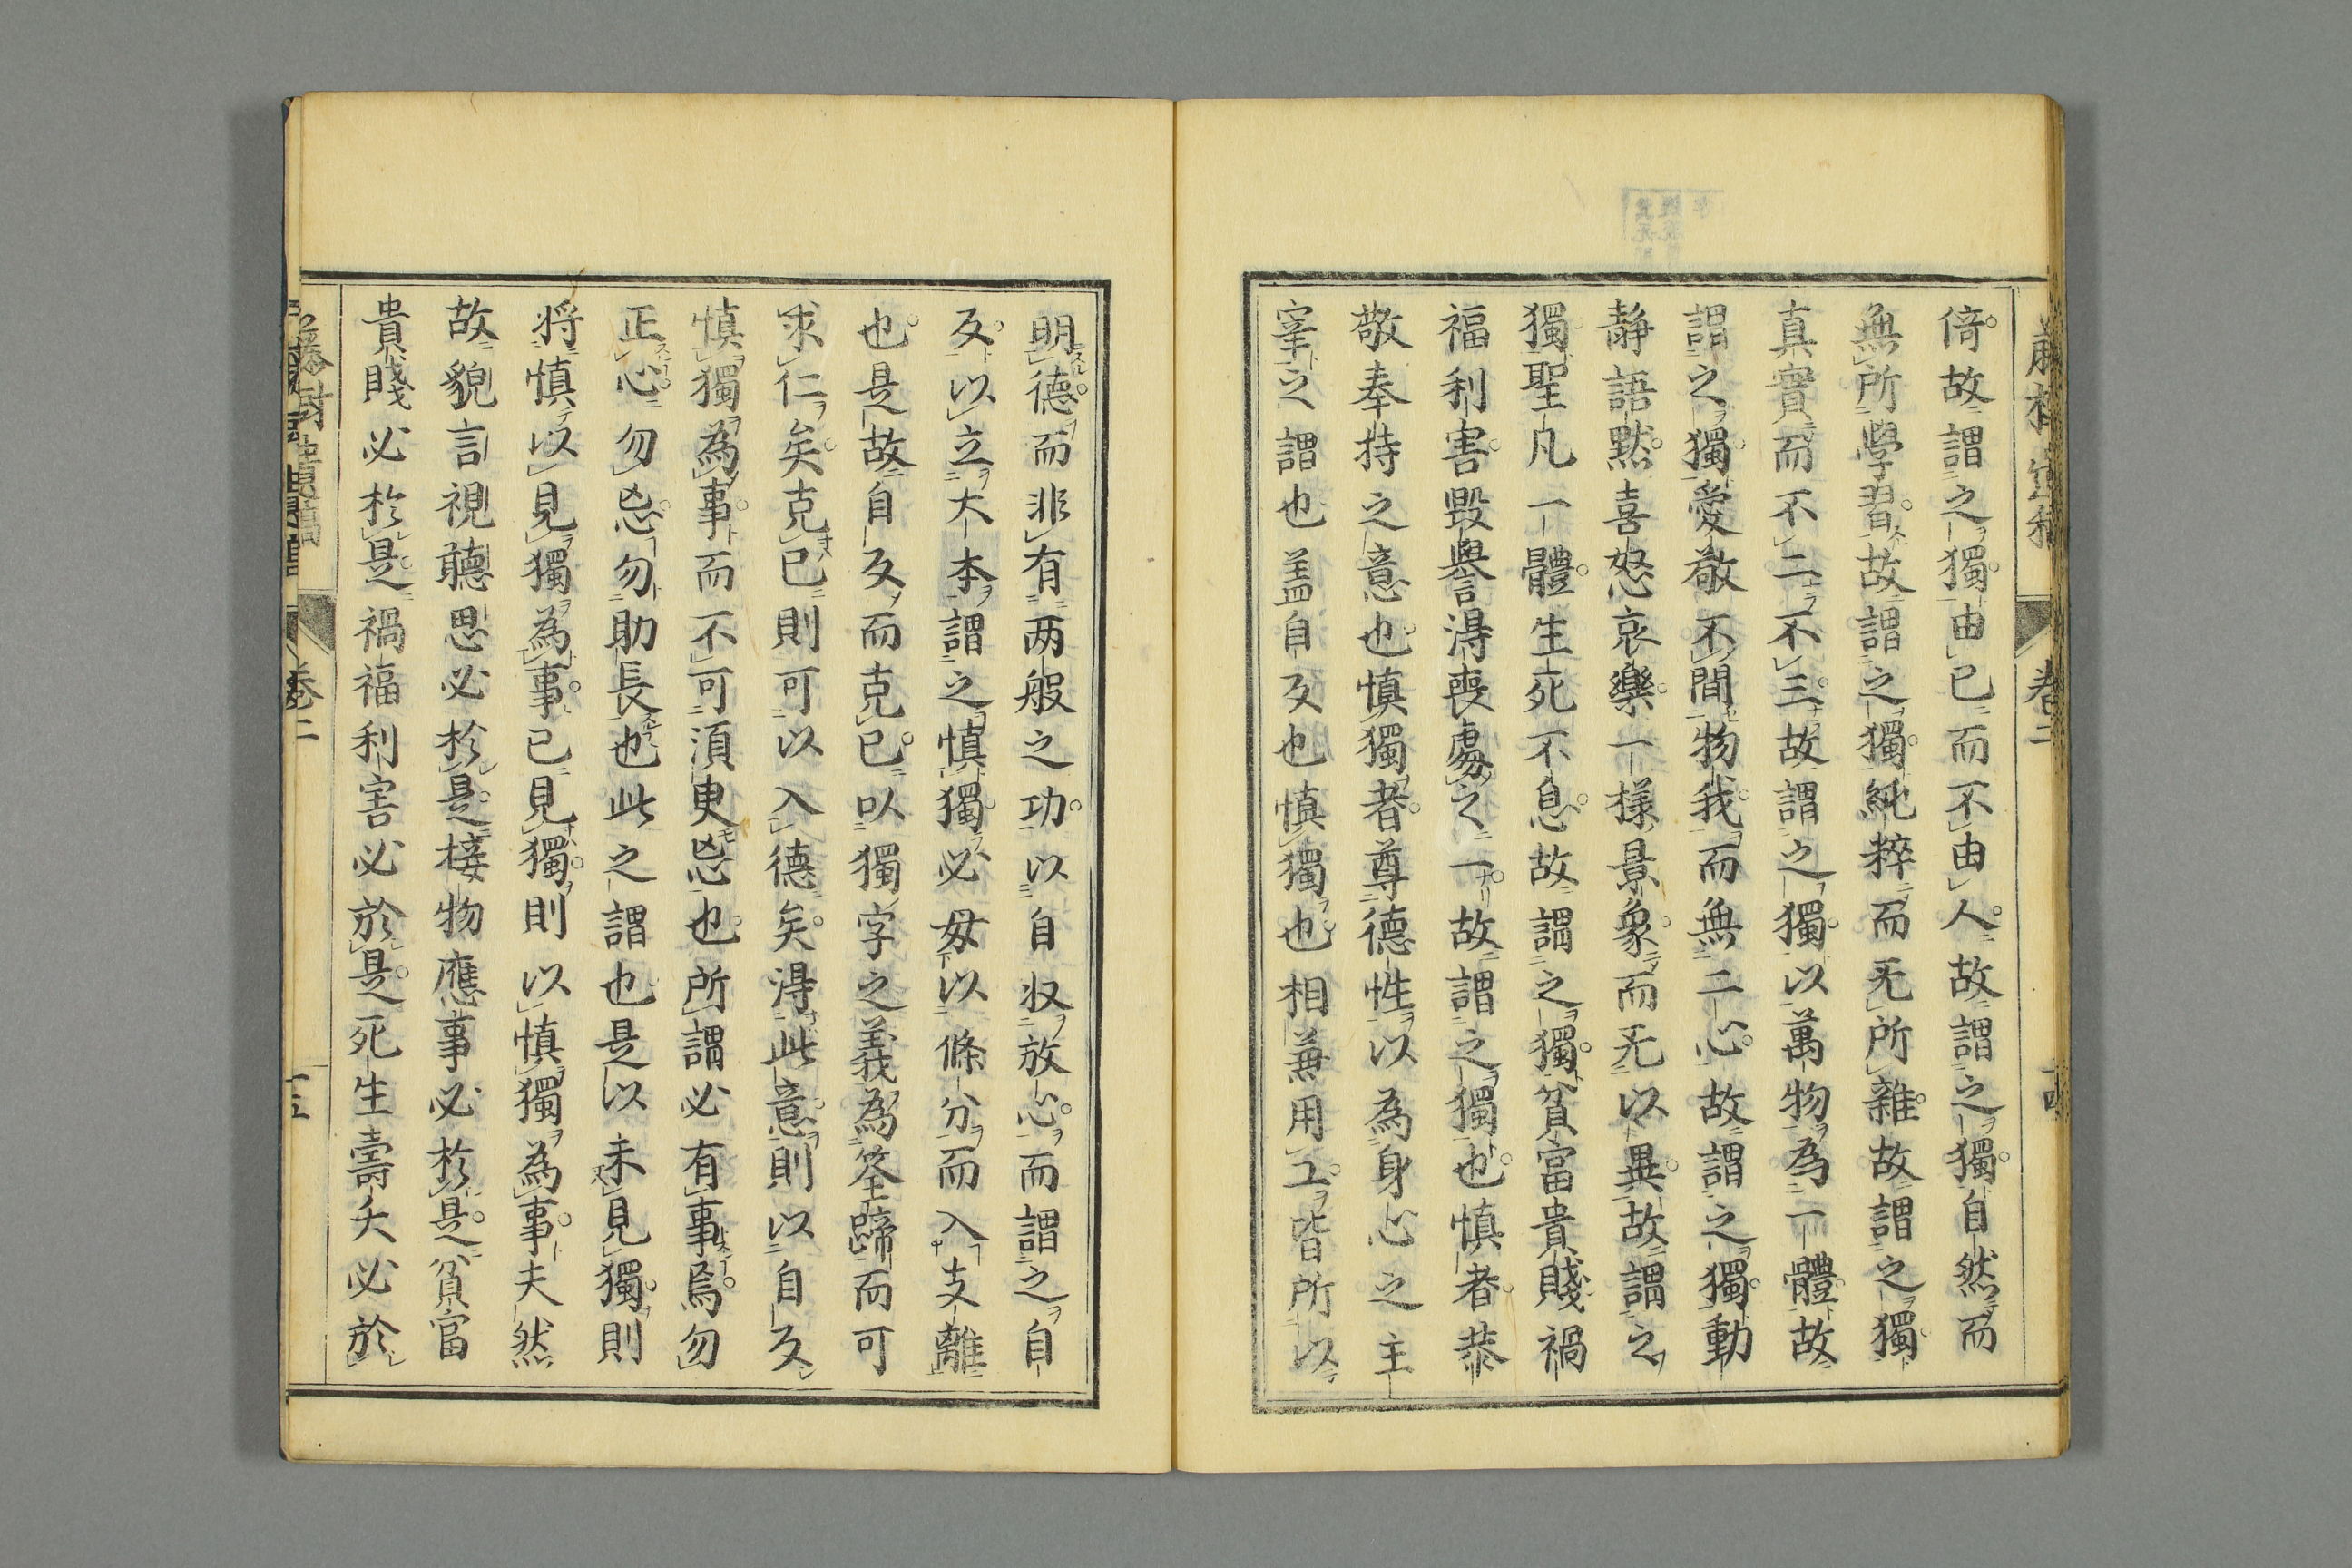 倚故謂之獨由己而不由人故謂之獨自然而
無所學習故謂之獨純粹而无所雜故謂之獨
真實而不二不三故謂之獨以萬物為一體故
謂之獨愛敬不間物我而無二心故謂之獨動
靜語默喜怒哀樂一樣景象而无以異故謂之
獨聖凡一體生死不息故謂之獨貧富貴賤禍
福利害毀譽得喪處之一故謂之獨也慎者恭
敬奉持之意也慎獨者尊德性以為身心之主
宰之謂也盖自反也慎獨也相兼用工皆所以
明德而非有两般之功以自収放心而謂之自
反以立大本謂之慎獨必毋以條分而入支離
也是故自反而克己以獨字之義為筌蹄而可
求仁矣克己則可以入德矣得此意則以自反
慎獨為事而不可須臾忘也所謂必有事焉勿
正心勿忘勿助長也此之謂也是以未見獨則
将慎以見獨為事已見獨則以慎獨為事夫然
故貌言視聽思必於是接物應事必於是貧富
貴賤必於是禍福利害必於是死生壽夭必於
卷二